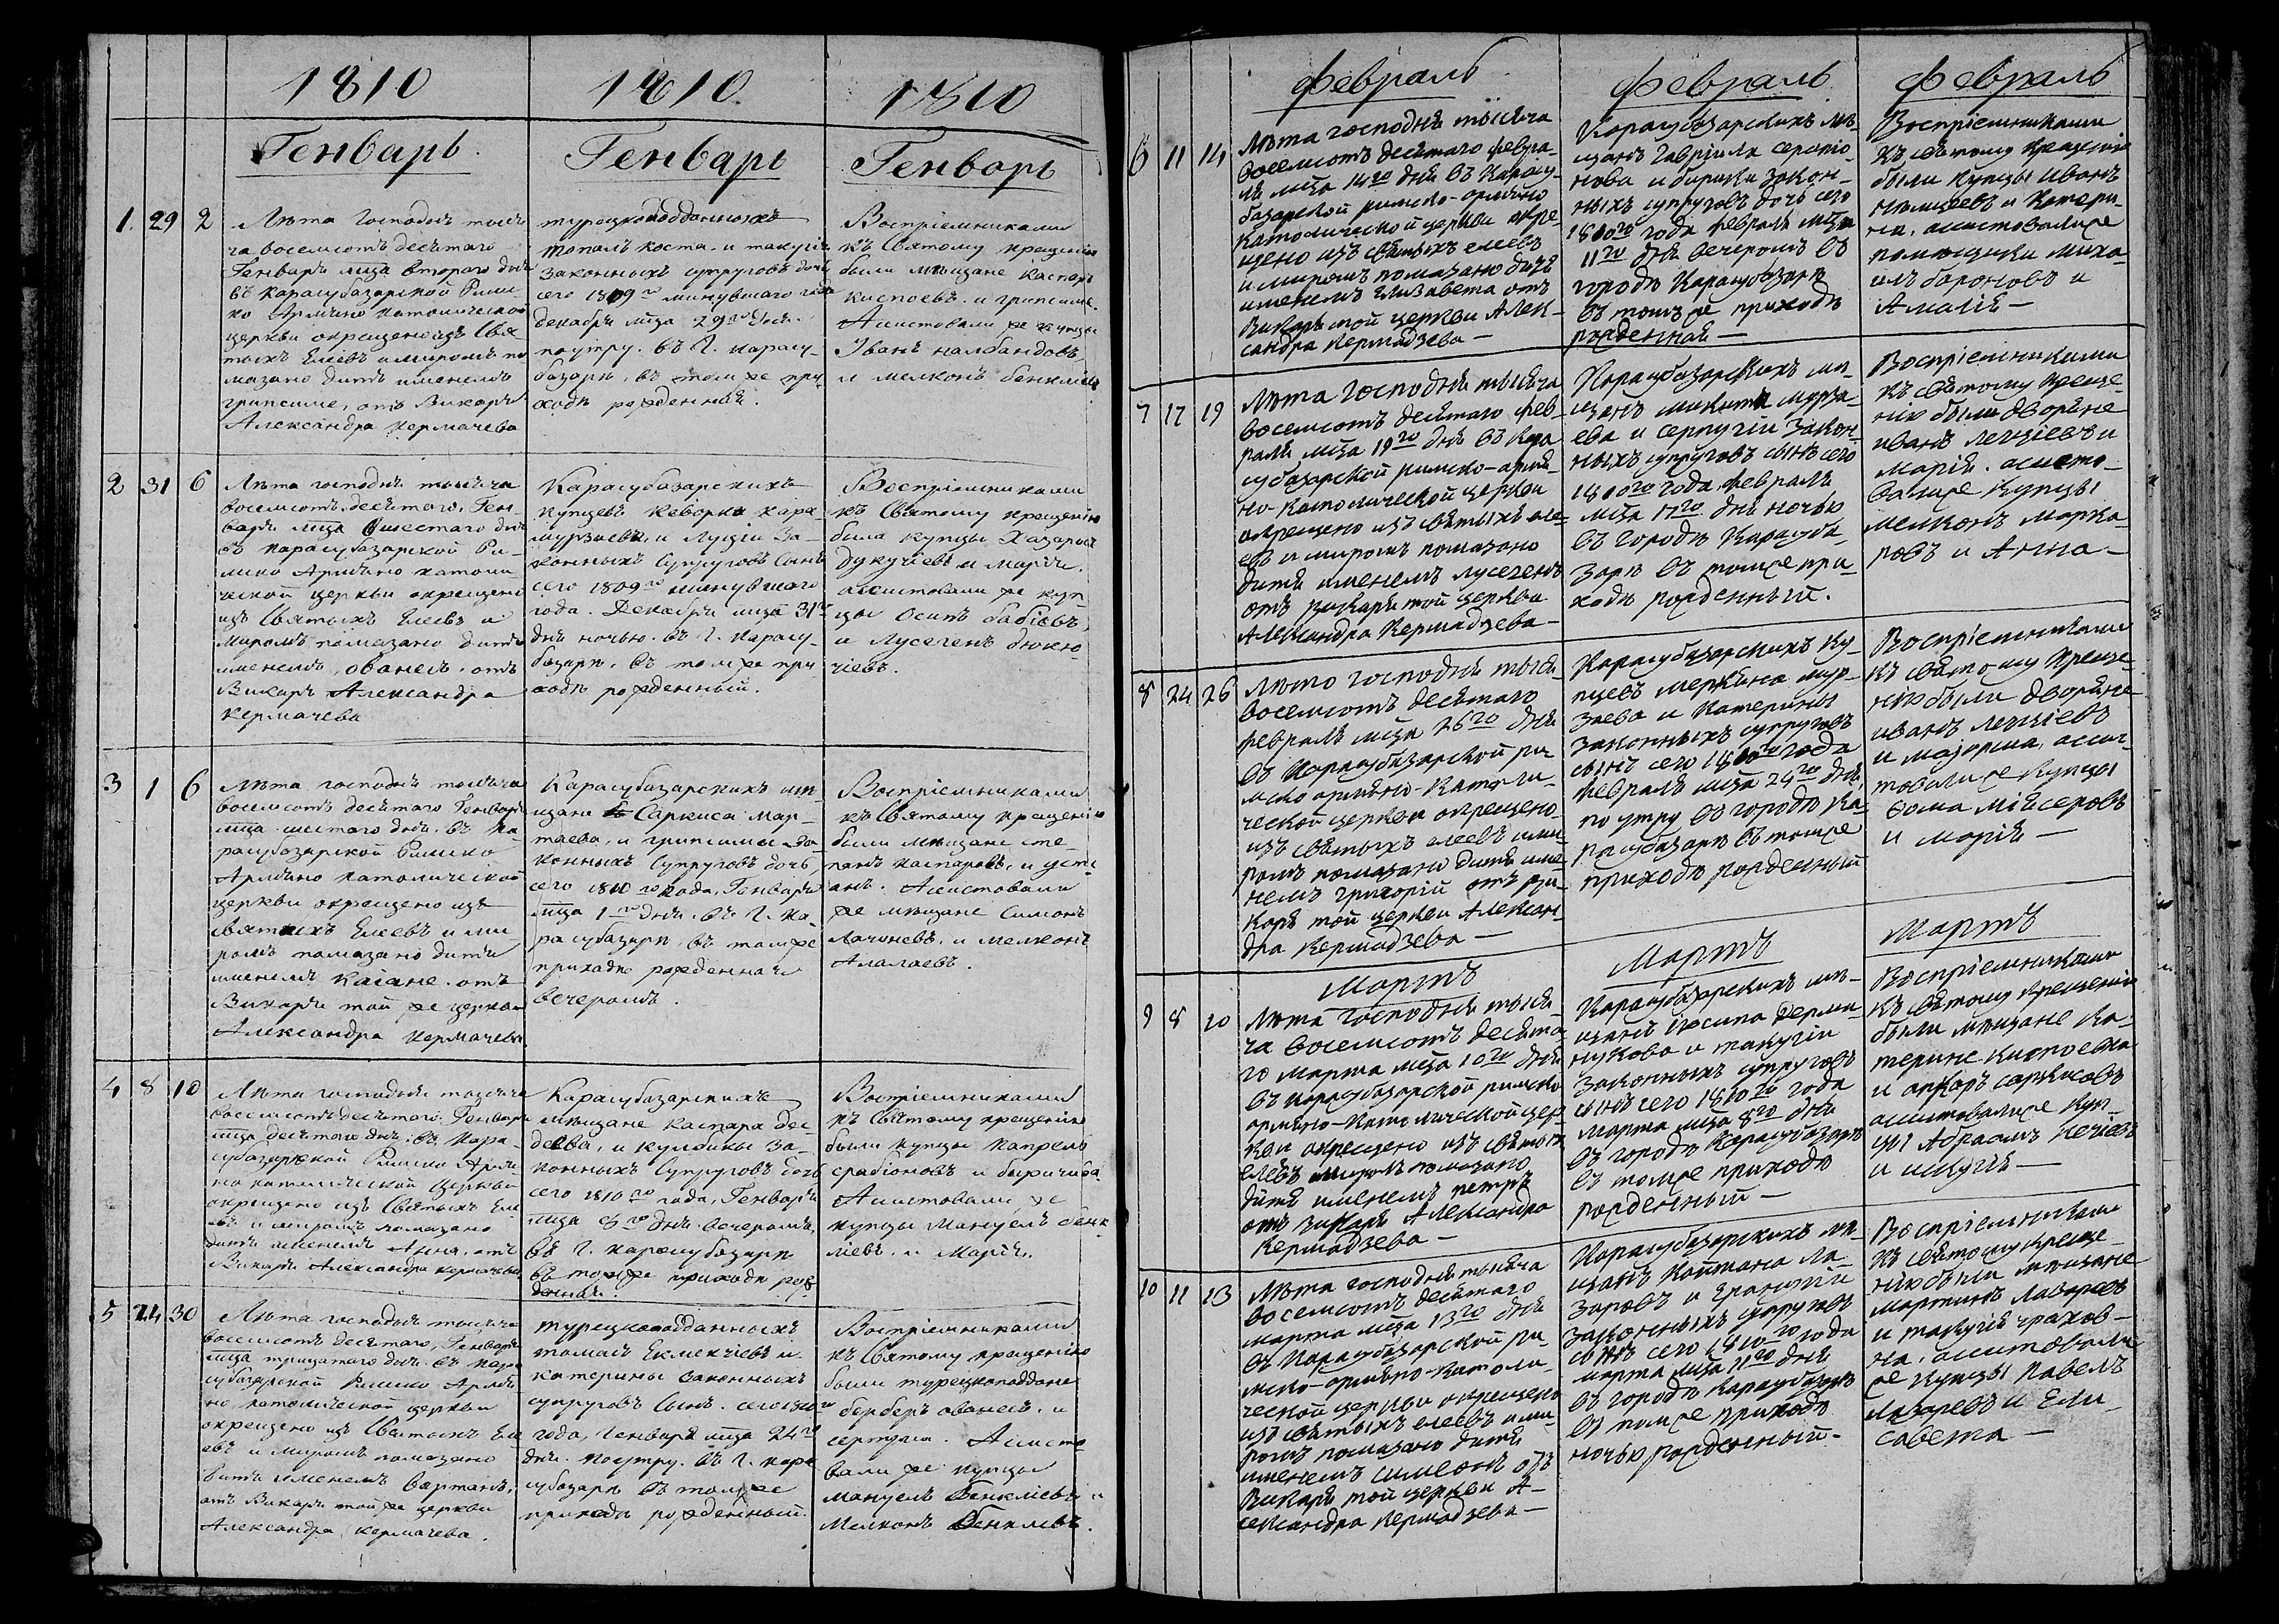 1810
1810
1810
Генварь
Генварь
Генварь
1. 29 2
Лѣта Господня тыся
ча восемьсотъ десятаго
Генваря мца втораго дня
въ карасубазарской Рим-
ко Армяно католической
церкви окрещено изъ Свя
тыхъ Елеевъ и миромъ по
мазано дитя именемъ
грипсиме, отъ Викарія
Александра кермачева
турецкоподданныхъ
топалъ коста. и такугіи
законныхъ супруговъ дочь
сего 1809го минувшаго года
декабря мца 29го дня.
по утру. въ Г. карасу-
базарѣ, въ том же при
ходѣ рожденная.
Воспріемниками
къ Святому крещенію
были мѣщане каспаръ
киспоевъ. и грипсиме.
Асистовали же купцы
Иванъ налбандовъ,
и мелконъ бенкліевъ
2 31 6
Лѣта господня тысяча
восемсотъ десятого, Ген-
варя мца шестаго дня
въ карасубазарской Ри-
мско Армяно католи-
ческой церкви окрещено
изъ Святыхъ Елеевъ и
миромъ помазано дитя
именемъ, ованесъ, отъ
Викарія Александра
кермачева
Карасубазарскихъ
купцевъ кеворка кара-
мурзаева, и Луціи за-
конныхъ Супруговъ Сынъ
сего 1809го минувшаго
года. Декабря мца 31го
дня ночью. въ Г. карасу-
базарѣ, въ том же при
ходѣ рожденный.
Воспріемниками
къ Святому крещенію
были купцы Хазаросъ
дукучіевъ и Марія.
асистовали же куп
цы Осипъ бабіевъ,
и Лусегенъ дюкю-
чіевъ.
3 1 6
Лѣта господня тысяча
восемсотъ десятаго Генваря
мца шестаго дня. въ Ка
расубазарской Римско
Армяно католической
церкви окрещено изъ
святыхъ Елеевъ и ми
ромъ помазано дитя
именемъ каіане. отъ
Викарія той же церкви
Александра кермачева
Карасубазарскихъ мѣ-
щанъ Саркиса Мар-
таева, и грипсимы за-
конныхъ Супруговъ дочь
сего 1810го года, Генваря
мца 1го дня. въ Г. Ка
расубазарѣ, въ том же
приходѣ рожденная
вечеромъ.
Воспріемниками
къ Святому крещенію
были мѣщане сте-
панъ каспаровъ, и усті
анъ. Асистовали
же мѣщане Симонъ
Лачиневъ, и мелконъ
Алалаевъ.
4 8 10
Лѣта господня тысяча
восемсотъ десятаго. Генваря
мца десятаго дня. въ Кара
субазарской Римско Армя-
но католической церкви
окрещено изъ Святыхъ Еле
евъ и миромъ помазано
дитя именемъ Анна, отъ
Викарія Александра кермачева
Карасубазарскихъ
мѣщане каспара дес-
деева, и кулбики за-
конныхъ Супруговъ дочь
сего 1810го года, Генваря
мца 8го дня вечеромъ,
въ Г. карасубазарѣ
въ том же приходѣ рож
денная.
Воспріемниками
къ Святому крещенію
были купцы капрелъ
срабіоновъ и
Асистовали же
купцы Мануелъ бенк
ліевъ. и Марія.
5 24 30
Лѣта господня тысяча
восемсотъ десятаго, Генваря
мца тридцатаго дня. въ кара
субазарской Римско Армя
но католической церкви
окрещено изъ Святыхъ Еле
евъ и миромъ помазано
дитя именемъ вартанъ,
отъ Викарія той же церкви
Александра кермачева.
турецкоподданныхъ
томасъ Екмекчіевъ и
катерины законныхъ
супруговъ Сынъ. сего 1810го
года, Генваря мца 24го
дня. по утру. въ Г. кара
субазарѣ въ том же
приходѣ рожденный.
Воспріемниками
къ Святому крещенію
были турецкоподдане
берберъ ованесъ. и
Асисто
вали же купцы
мануелъ бенкліевъ и
Мелконъ бенкліевъ.
Февраль
Февраль
Февраль
6 11 14
Лѣта господня тысяча
восемсотъ десятаго февра-
ля мца 14го дня въ Карасу-
базарской римско-армяно
католической церкви окре-
щено изъ святыхъ елеевъ
и миромъ помазано дитя
именемъ Елизавета отъ
викарія той церкви Алек-
сандра Кермадзева —
Карасубазарскихъ мѣ-
щанъ Гавріила серопіо-
нова и бирики закон-
ныхъ супруговъ дочь сего
1810го года февраля мца
11го дня вечеромъ въ
городѣ Карасубазарѣ
въ томъ же приходѣ
рожденная —
Воспріемниками
къ святому крещенію
были купцы иванъ
нѣмцевъ и Катери-
на, асистовали же
помещики миха-
илъ бароновъ и
Амалія —
7 17 19
Лѣта господня тысяча
восемсотъ десятаго фев-
раля мца 19го дня въ Кара
субазарской римско-армя-
но-католической церкви
окрещено изъ святыхъ еле-
евъ и миромъ помазано
дитя именемъ лусегенъ
отъ викарія той церкви
Александра Кермадзева —
Карасубазарскихъ мѣ-
щанъ микита мурза-
ева и серпугіи закон-
ныхъ супруговъ сынъ сего
1810го года февраля
мца 17го дня ночью
въ городѣ Карасуба-
зарѣ въ томже при-
ходѣ рожденный.
Воспріемниками
къ святому креще-
нію были дворяне
иванъ и
марія. асисто-
вали же купцы
мелконъ марка-
ровъ и Анна —
8 24 26
Лѣто господня тыся-
восемсотъ десятаго
февраля мца 26го дня
въ Карасубазарской ри-
мско армяно-католи-
ческой церкви окрещено
изъ святыхъ елеевъ и ми-
ромъ помазано дитя име-
немъ григорій отъ ви-
каря той церкви Алексан-
дра Кермадзева —
Карасубазарскихъ ку-
пцевъ меркона мур-
заева и Катерины
законныхъ супруговъ
сынъ сего 1810го года
февраля мца 24го дня
по утру въ городѣ Ка-
расубазарѣ въ томже
приходѣ рожденный
Воспріемниками
къ святому креще-
нію были дворяне
иванъ
и асис-
товали же купцы
Фома
и марія —
Мартъ
Мартъ
Мартъ
9 8 10
Лѣта Господня тыся-
ча восемсотъ десята-
го марта мца 10го дня
въ карасубазарской римско
армяно-католической цер-
кви окрещено изъ святыхъ
елеевъ миромъ помазано
дитя именемъ петръ
отъ викарія Александра
Кермадзева —
Карасубазарскихъ мѣ-
щанъ іосипа дерме-
нукова и такугіи
законныхъ супруговъ
сынъ сего 1810го года
марта мца 8го дня
въ городѣ Карасубазарѣ
въ томже приходѣ
рожденный —
Воспріемниками
къ святому крещенію
были мѣщане ка-
терине киспоевна
и саркисовъ
асистовали же куп-
цы Абрамъ Кечіевъ
и —
10 11 13
Лѣта господня тысяча
восемсотъ десятаго
марта мца 13го дня
въ Карасубазарской ри-
мско-армяно-католи-
ческой церкви окрещено
изъ святыхъ елеевъ и ми-
ромъ помазано дитя
именемъ симеонъ отъ
викарія той церкви А-
лександра Кермадзева —
Карасубазарскихъ мѣ-
щанъ Каитана ла-
заровъ и
законныхъ супруговъ
сынъ сего 1810го года
марта мца 11го дня
въ городѣ Карасубазарѣ
въ томже приходѣ
ночью рожденный —
Воспріемниками
къ святому креще-
нію были мѣщане
мартинъ лазаревъ
и такугія
асистовали
же купцы Павелъ
лазаревъ и Ели-
савета —